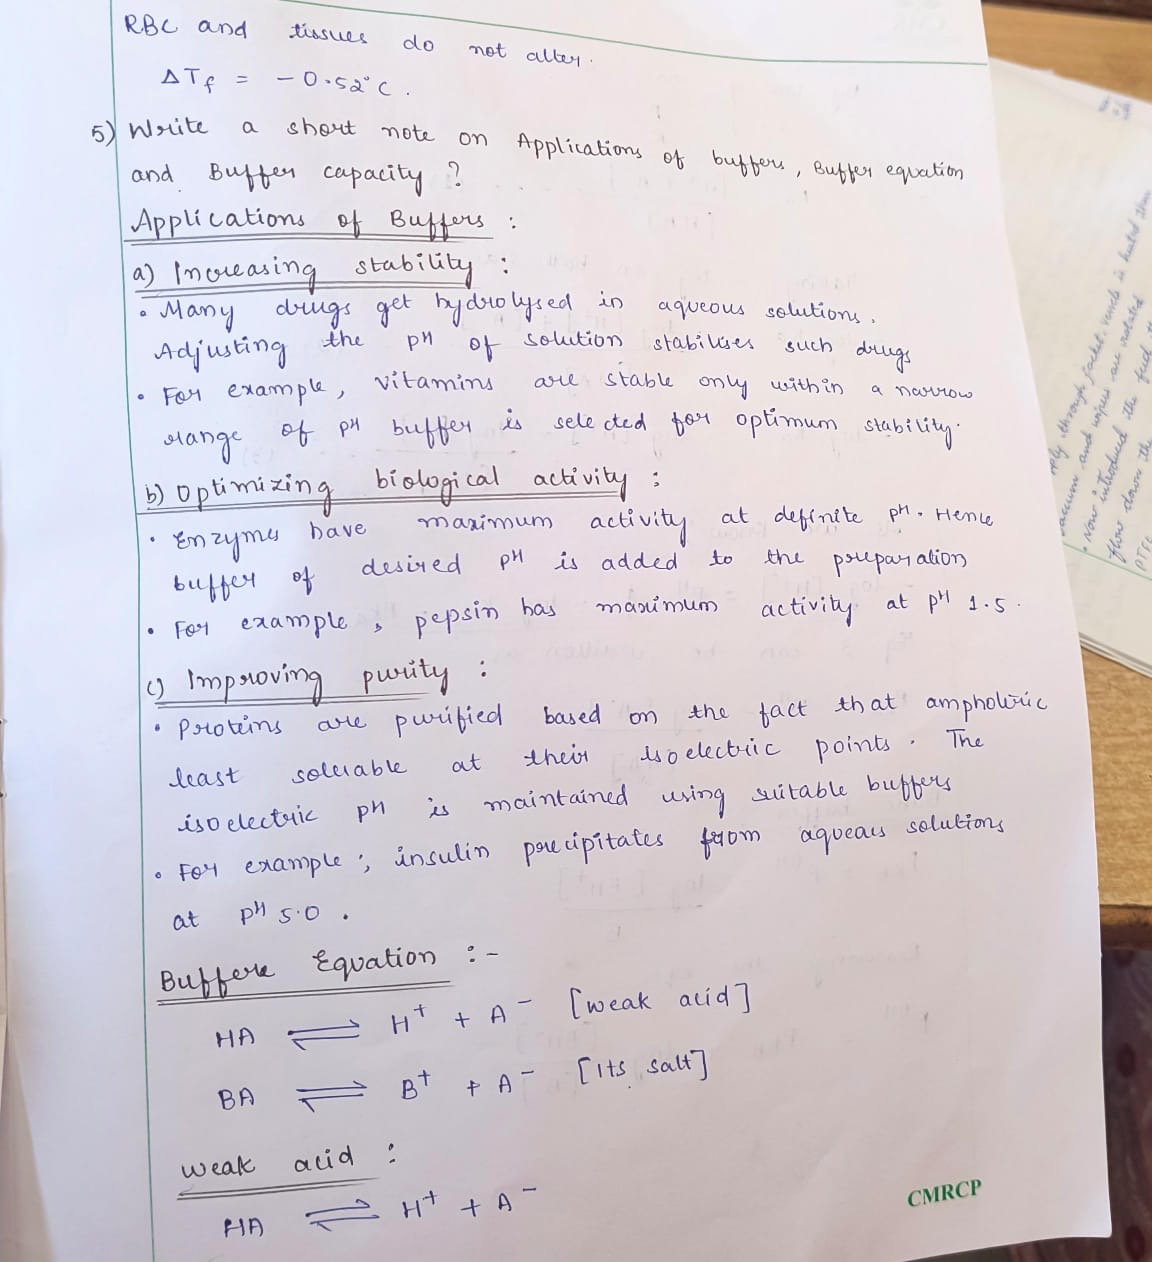 RBC and tissues do not alter.
ΔTf = -0.52°C.
5) Write a short note on Applications of buffers, Buffer equation
and Buffer capacity?
Applications of Buffers :
a) Increasing stability :
• Many drugs get hydrolysed in aqueous solutions.
Adjusting the pH of solution stabilises such drugs
• For example, vitamins are stable only within a narrow
range of pH buffer is selected for optimum stability.
b) Optimizing biological activity :
• Enzymes have maximum activity at definite pH. Hence
buffer of desired pH is added to the preparation
• For example, pepsin has maximum activity at pH 1.5.
c) Improving purity :
• Proteins are purified based on the fact that ampholiric
least soluable at their isoelectric points. The
isoelectric pH is maintained using suitable buffers
• For example; insulin precipitates from aqueous solutions
at pH 5.0.
Buffere Equation :-
HA ⇌ H⁺ + A⁻ [weak acid]
BA ⇌ B⁺ + A⁻ [Its salt]
weak acid :
HA ⇌ H⁺ + A⁻
CMRCP
through jacket, vands is heated then
and wipes are rotated
• Now introduced the feed
flow down the